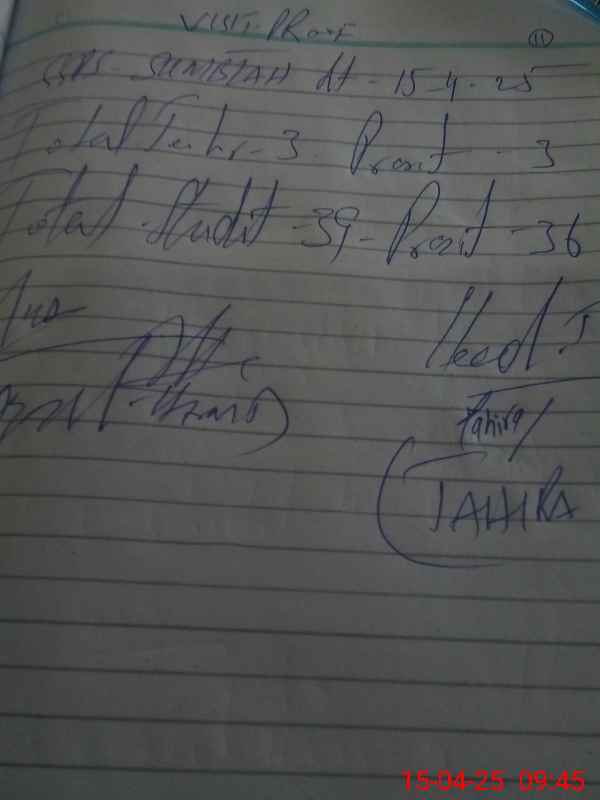 VISIT PROOF
11
GPS SUMBLAH dt - 15-4-25
Total Teahr - 3 Presnt - 3
Total Studnt - 39 - Presnt - 36
Head T
Tahira
(TAHIRA
15-04-25 09:45